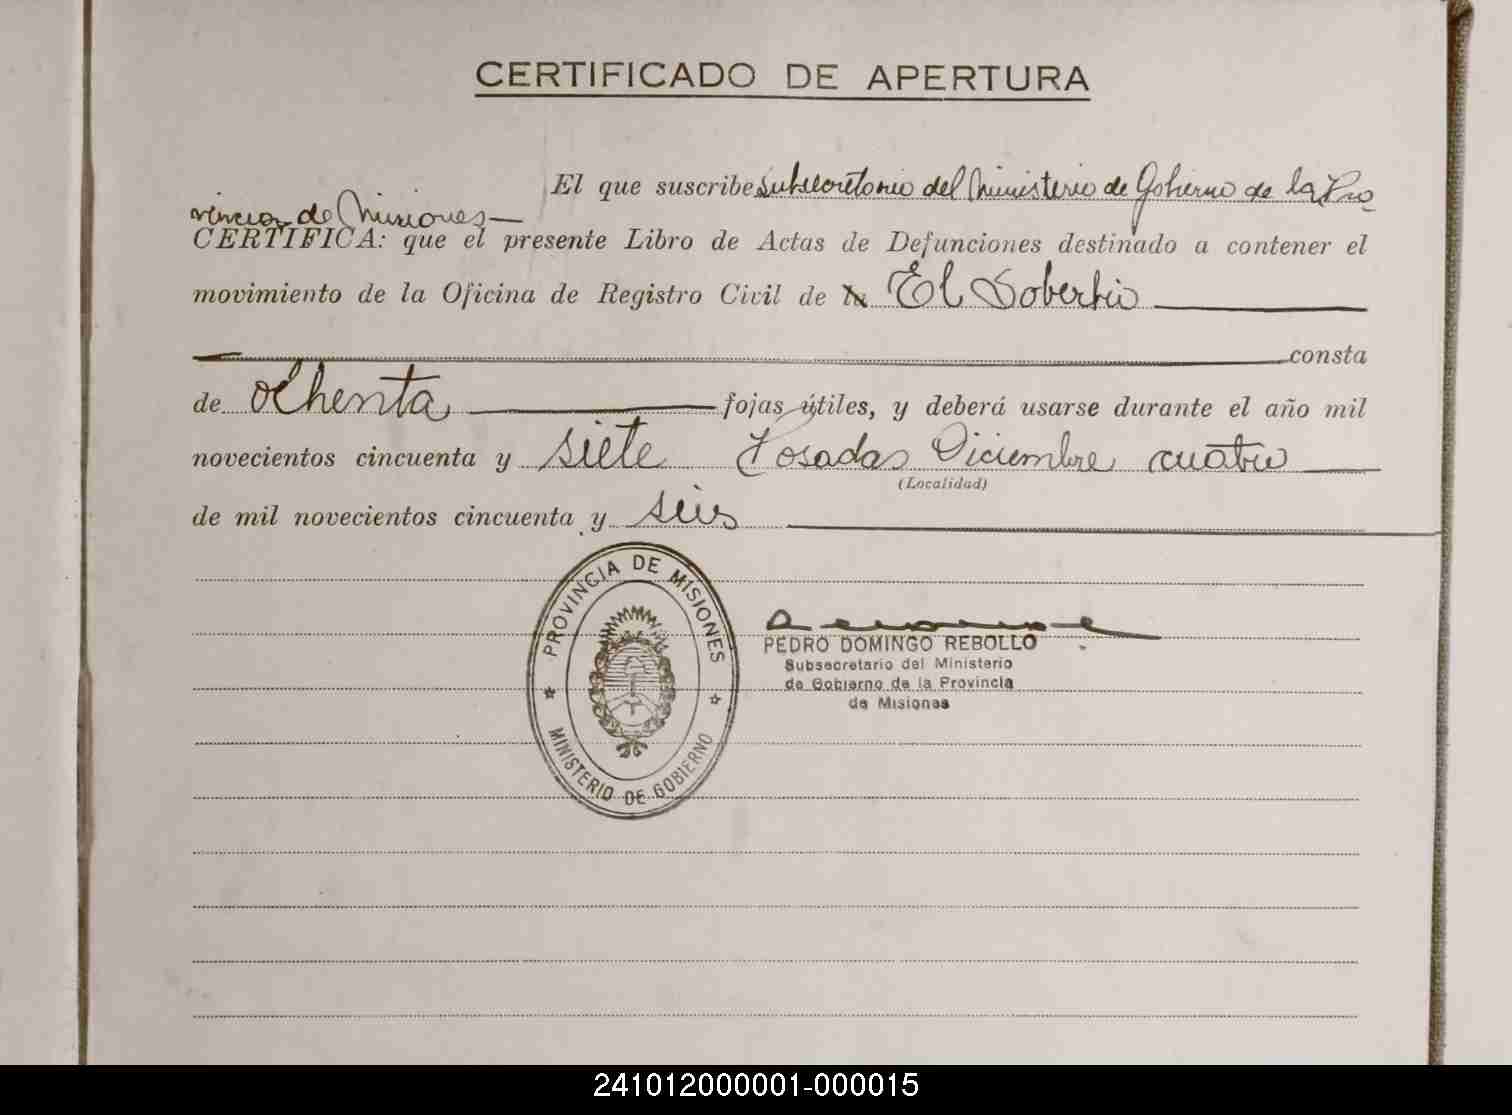 CERTIFICADO DE APERTURA
El que suscribe Subsecretario del Ministerio de Gobierno de la Pro
vincia de Misiones
CERTIFICA: que el presente Libro de Actas de Defunciones destinado a contener el
movimiento de la Oficina de Registro Civil de El Soberbio
consta
de ochenta fojas útiles, y deberá usarse durante el año mil
novecientos cincuenta y siete Posadas Diciembre cuatro
(Localidad)
de mil novecientos cincuenta y seis
PROVINCIA DE MISIONES
MINISTERIO DE GOBIERNO
PEDRO DOMINGO REBOLLO
Subsecretario del Ministerio
de Gobierno de la Provincia
de Misiones
241012000001-000015